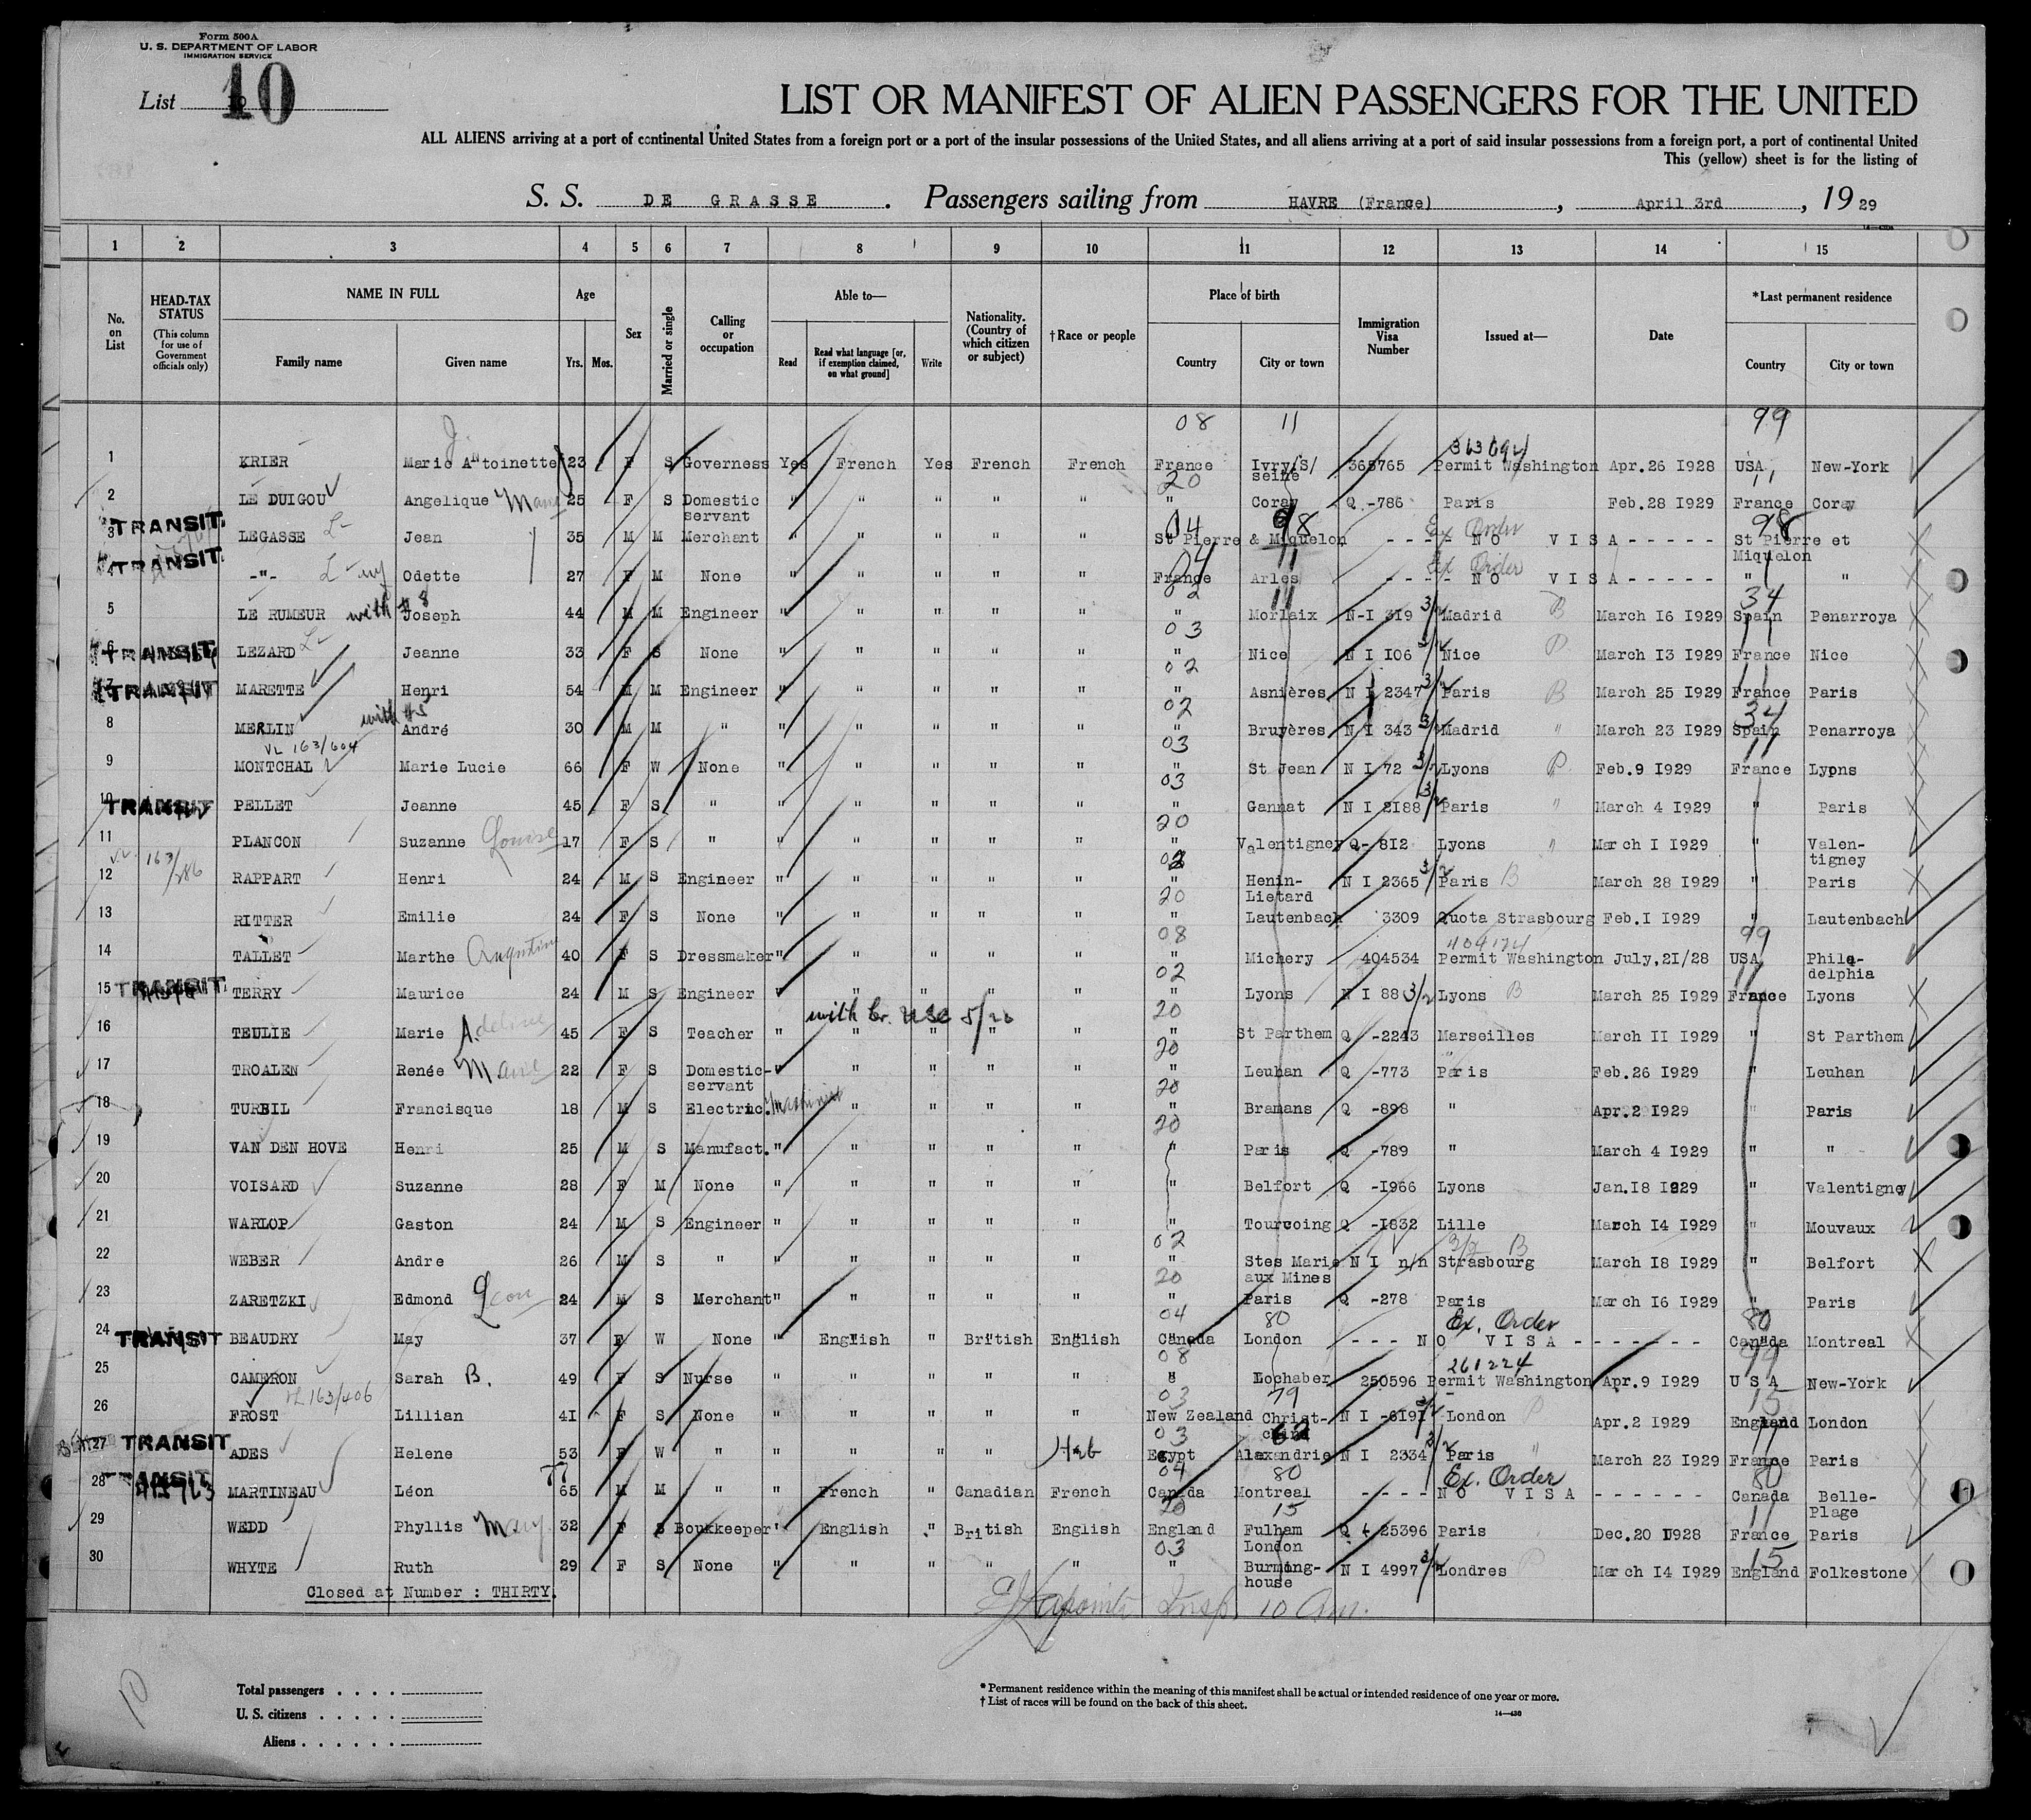 Form 500A
U. S. DEPARTMENT OF LABOR
IMMIGRATION SERVICE
List 10
LIST OR MANIFEST OF ALIEN PASSENGERS FOR THE UNITED
ALL ALIENS arriving at a port of continental United States from a foreign port or a port of the insular possessions of the United States, and all aliens arriving at a port of said insular possessions from a foreign port, a port of continental United
This (yellow) sheet is for the listing of
S. S. DE GRASSE. Passengers sailing from HAVRE (France), April 3rd, 19 29
1 2 3 4 5 6 7 8 9 10 11 12 13 14 15
No. on List
HEAD-TAX STATUS (This column for use of Government officials only)
NAME IN FULL Family name Given name
Age Yrs. Mos.
Sex
Married or single
Calling or occupation
Able to— Read Read what language [or, if exemption claimed, on what ground] Write
Nationality. (Country of which citizen or subject)
†Race or people
Place of birth Country City or town
Immigration Visa Number
Issued at—
Date
*Last permanent residence Country City or town
08 11 99
363694
1 KRIER Marie Antoinette J. 23 F S Governess Yes French Yes French French France Ivry/S/ seine 365765 Permit Washington Apr.26 I928 USA New-York
20 11
2 LE DUIGOU Angelique Marie 25 F S Domestic servant " " " " " " Coray Q -786 Paris Feb.28 I929 France Coray
04 98 Ex Order 98
TRANSIT 3 LEGASSE Jean 35 M M Merchant " " " " " St Pierre & Miquelon - - - - NO VISA - - - - - St Pierre et Miquelon
04 11 Ex Order
TRANSIT 4 -"- Odette 27 F M None " " " " " France Arles - - - - NO VISA - - - - - " "
02 11 34
5 LE RUMEUR with #8 Joseph 44 M M Engineer " " " " " " Morlaix N-I 3I9 3/2 Madrid B March I6 I929 Spain Penarroya
03 11
TRANSIT 6 LEZARD Jeanne 33 F S None " " " " " " Nice N I I06 3/2 Nice P March I3 I929 France Nice
02 11
TRANSIT 7 MARETTE Henri 54 M M Engineer " " " " " " Asnières N I 2347 3/2 Paris B March 25 I929 France Paris
02 34
8 MERLIN with #5 André 30 M M " " " " " " " Bruyères N I 343 3/2 Madrid " March 23 I929 Spain Penarroya
VL 163/604 03 11
9 MONTCHAL Marie Lucie 66 F W None " " " " " " St Jean N I 72 3/2 Lyons P Feb.9 I929 France Lyons
03
TRANSIT 10 PELLET Jeanne 45 F S " " " " " " " Gannat N I 2I88 3/2 Paris " March 4 I929 " Paris
20
11 PLANCON Suzanne Louise 17 F S " " " " " " " Valentigney Q- 8I2 Lyons " March I I929 " Valen-tigney
163/286 02
12 RAPPART Henri 24 M S Engineer " " " " " " Henin-Lietard N I 2365 3/2 Paris B March 28 I929 " Paris
20
13 RITTER Emilie 24 F S None " " " " " " Lautenbach 3309 Quota Strasbourg Feb.I I929 " Lautenbach
08 404174 99
14 TALLET Marthe Augustine 40 F S Dressmaker " " " " " " Michery 404534 Permit Washington July,2I/28 USA Phila-delphia
02 11
TRANSIT 15 TERRY Maurice 24 M S Engineer " " " " " " Lyons N I 88 3/2 Lyons B March 25 I929 France Lyons
20
16 TEULIE Marie Adeline 45 F S Teacher " " " " " " St Parthem Q -2243 Marseilles March II I929 " St Parthem
20
17 TROALEN Renée Marie 22 F S Domestic-servant " " " " " " Leuhan Q -773 Paris Feb.26 I929 " Leuhan
20
18 TURBIL Francisque 18 M S Electric. Machinist " " " " " " Bramans Q -898 " Apr.2 I929 " Paris
20
19 VAN DEN HOVE Henri 25 M S Manufact. " " " " " " Paris Q -789 " March 4 I929 " "
20 VOISARD Suzanne 28 F M None " " " " " " Belfort Q -I966 Lyons Jan.I8 I929 " Valentigney
21 WARLOP Gaston 24 M S Engineer " " " " " " Tourcoing Q -I832 Lille March I4 I929 " Mouvaux
02 3/2 B
22 WEBER Andre 26 M S " " " " " " " Stes Marie aux Mines N I n/n Strasbourg March I8 I929 " Belfort
20
23 ZARETZKI Edmond Leon 24 M S Merchant " " " " " " Paris Q -278 Paris March I6 I929 " Paris
04 80 Ex. Order 80
TRANSIT 24 BEAUDRY May 37 F W None " English " British English Canada London - - - NO VISA - - - - - - - Canada Montreal
08 261224 99
25 CAMERON Sarah B. 49 F S Nurse " " " " " " Lochaber 250596 Permit Washington Apr.9 I929 U S A New-York
VL 163/406 03 79 15
26 FROST Lillian 4I F S None " " " " " New Zealand Christ- N I -6I9I 3/2 London P Apr.2 I929 England London
03 62 11
TRANSIT 27 ADES Helene 53 F W " " " " " Heb Egypt Alexandrie N I 2334 3/2 Paris " March 23 I929 France Paris
04 80 Ex. Order 80
TRANSIT 28 MARTINEAU Léon 65 M M " " French " Canadian French Canada Montreal - - - - NO VISA - - - - - - Canada Belle-Plage
20 15 11
29 WEDD Phyllis Mary 32 F S Bookkeeper " English " British English England Fulham London Q - 25396 Paris Dec.20 I928 France Paris
03 15
30 WHYTE Ruth 29 F S None " " " " " " Burming-house N I 4997 3/2 Londres P March I4 I929 England Folkestone
Closed at Number : THIRTY.
Insp. 10 Am.
10
Total passengers
U. S. citizens
Aliens
* Permanent residence within the meaning of this manifest shall be actual or intended residence of one year or more.
† List of races will be found on the back of this sheet.
14—430